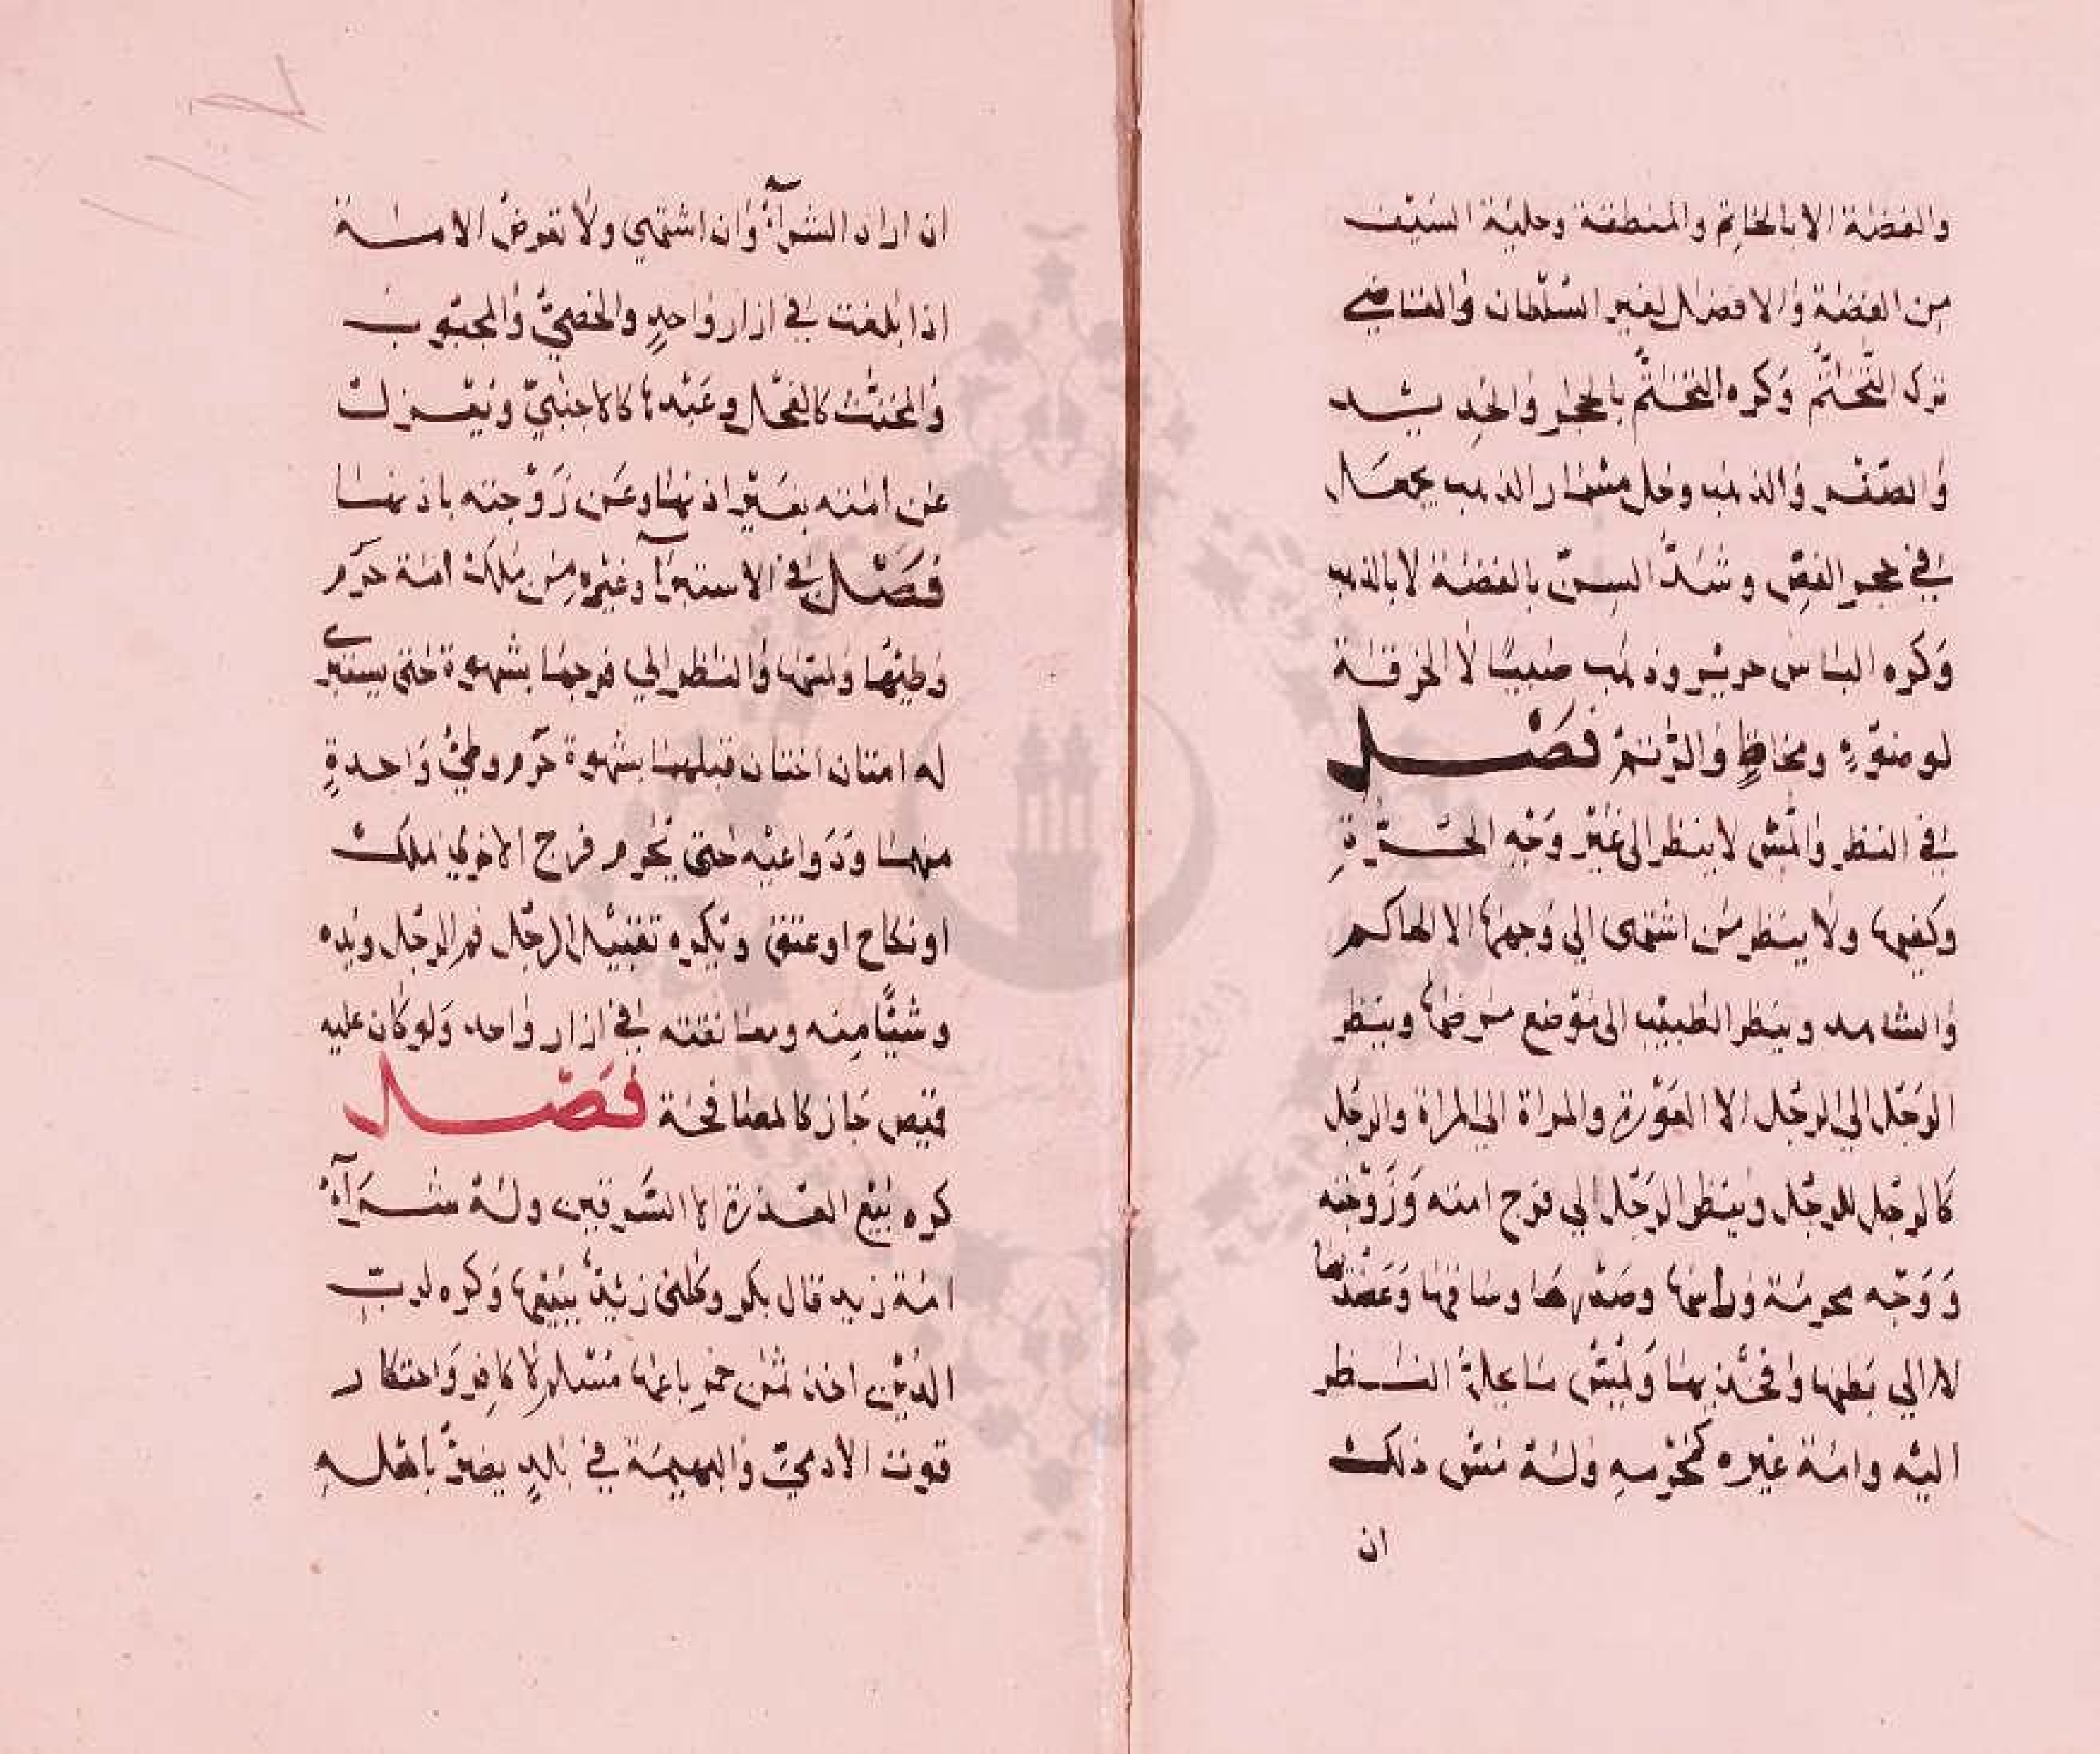 والفضة الا بالخاتم والمنطقة وحلية السيف
من الفضة والافضل لغير السلطان والقاضي
ترك التختم وكره التختم بالحجر والحديد
والصفر والذهب وحل مسمار الذهب يجعل
في حجر الفص وشد السن بالفضة لا بالذهب
وكره الباس حرير وذهب صبيا لا الخرقة
لوضوء ومخاط والرتم فصل
في النظر والمس لا ينظر الى غير وجه الحرة
وكفيها ولا ينظر من اشتهى الى وجهها الا الحاكم
والشاهد وينظر الطبيب الى موضع مرضها وينظر
الرجل الى الرجل الا العورة والمراة الى المراة والرجل
كالرجل للرجل وينظر الرجل الى فرج امته وزوجته
ووجه محرمه وراسها وصدرها وساقها وعضدها
لا الى بطنها وفخذيها ويمس ما يحل النظر
اليه وامة غيره كمحرمه وله مس ذلك
ان
ان اراد الشرآء وان اشتهى ولا تعرض الامة
اذا بلغت في ازار واحد والخصي والمجبوب
والمخنث كالفحل وعبدها كالاجنبي ويعزل
عن امته بغير اذنها وعن زوجته باذنها
فصل في الاستبرآ وغيره من ملك امة حرم
وطيها ولمسها والنظر الى فرجها بشهوة حتى يستبرئ
له امتان اختان قبلهما بشهوة حرم وطئ واحدة
منهما ودواعيه حتى يحرم فرج الاخرى بملك
او نكاح او عتق ويكره تقبيل الرجل فم الرجل ويده
وشيًا منه ومعانقته في ازار واحد ولو كان عليه
قميص جاز كالمصافحة فصل
كره بيع العذرة لا السرقين وله شرآء
امة زيد قال بكر وكلني زيد ببيعها وكره لرب
الدين اخذ ثمن خمر باعها مسلم لا كافر واحتكار
قوت الادمي والبهيمة في بلد يضر باهله